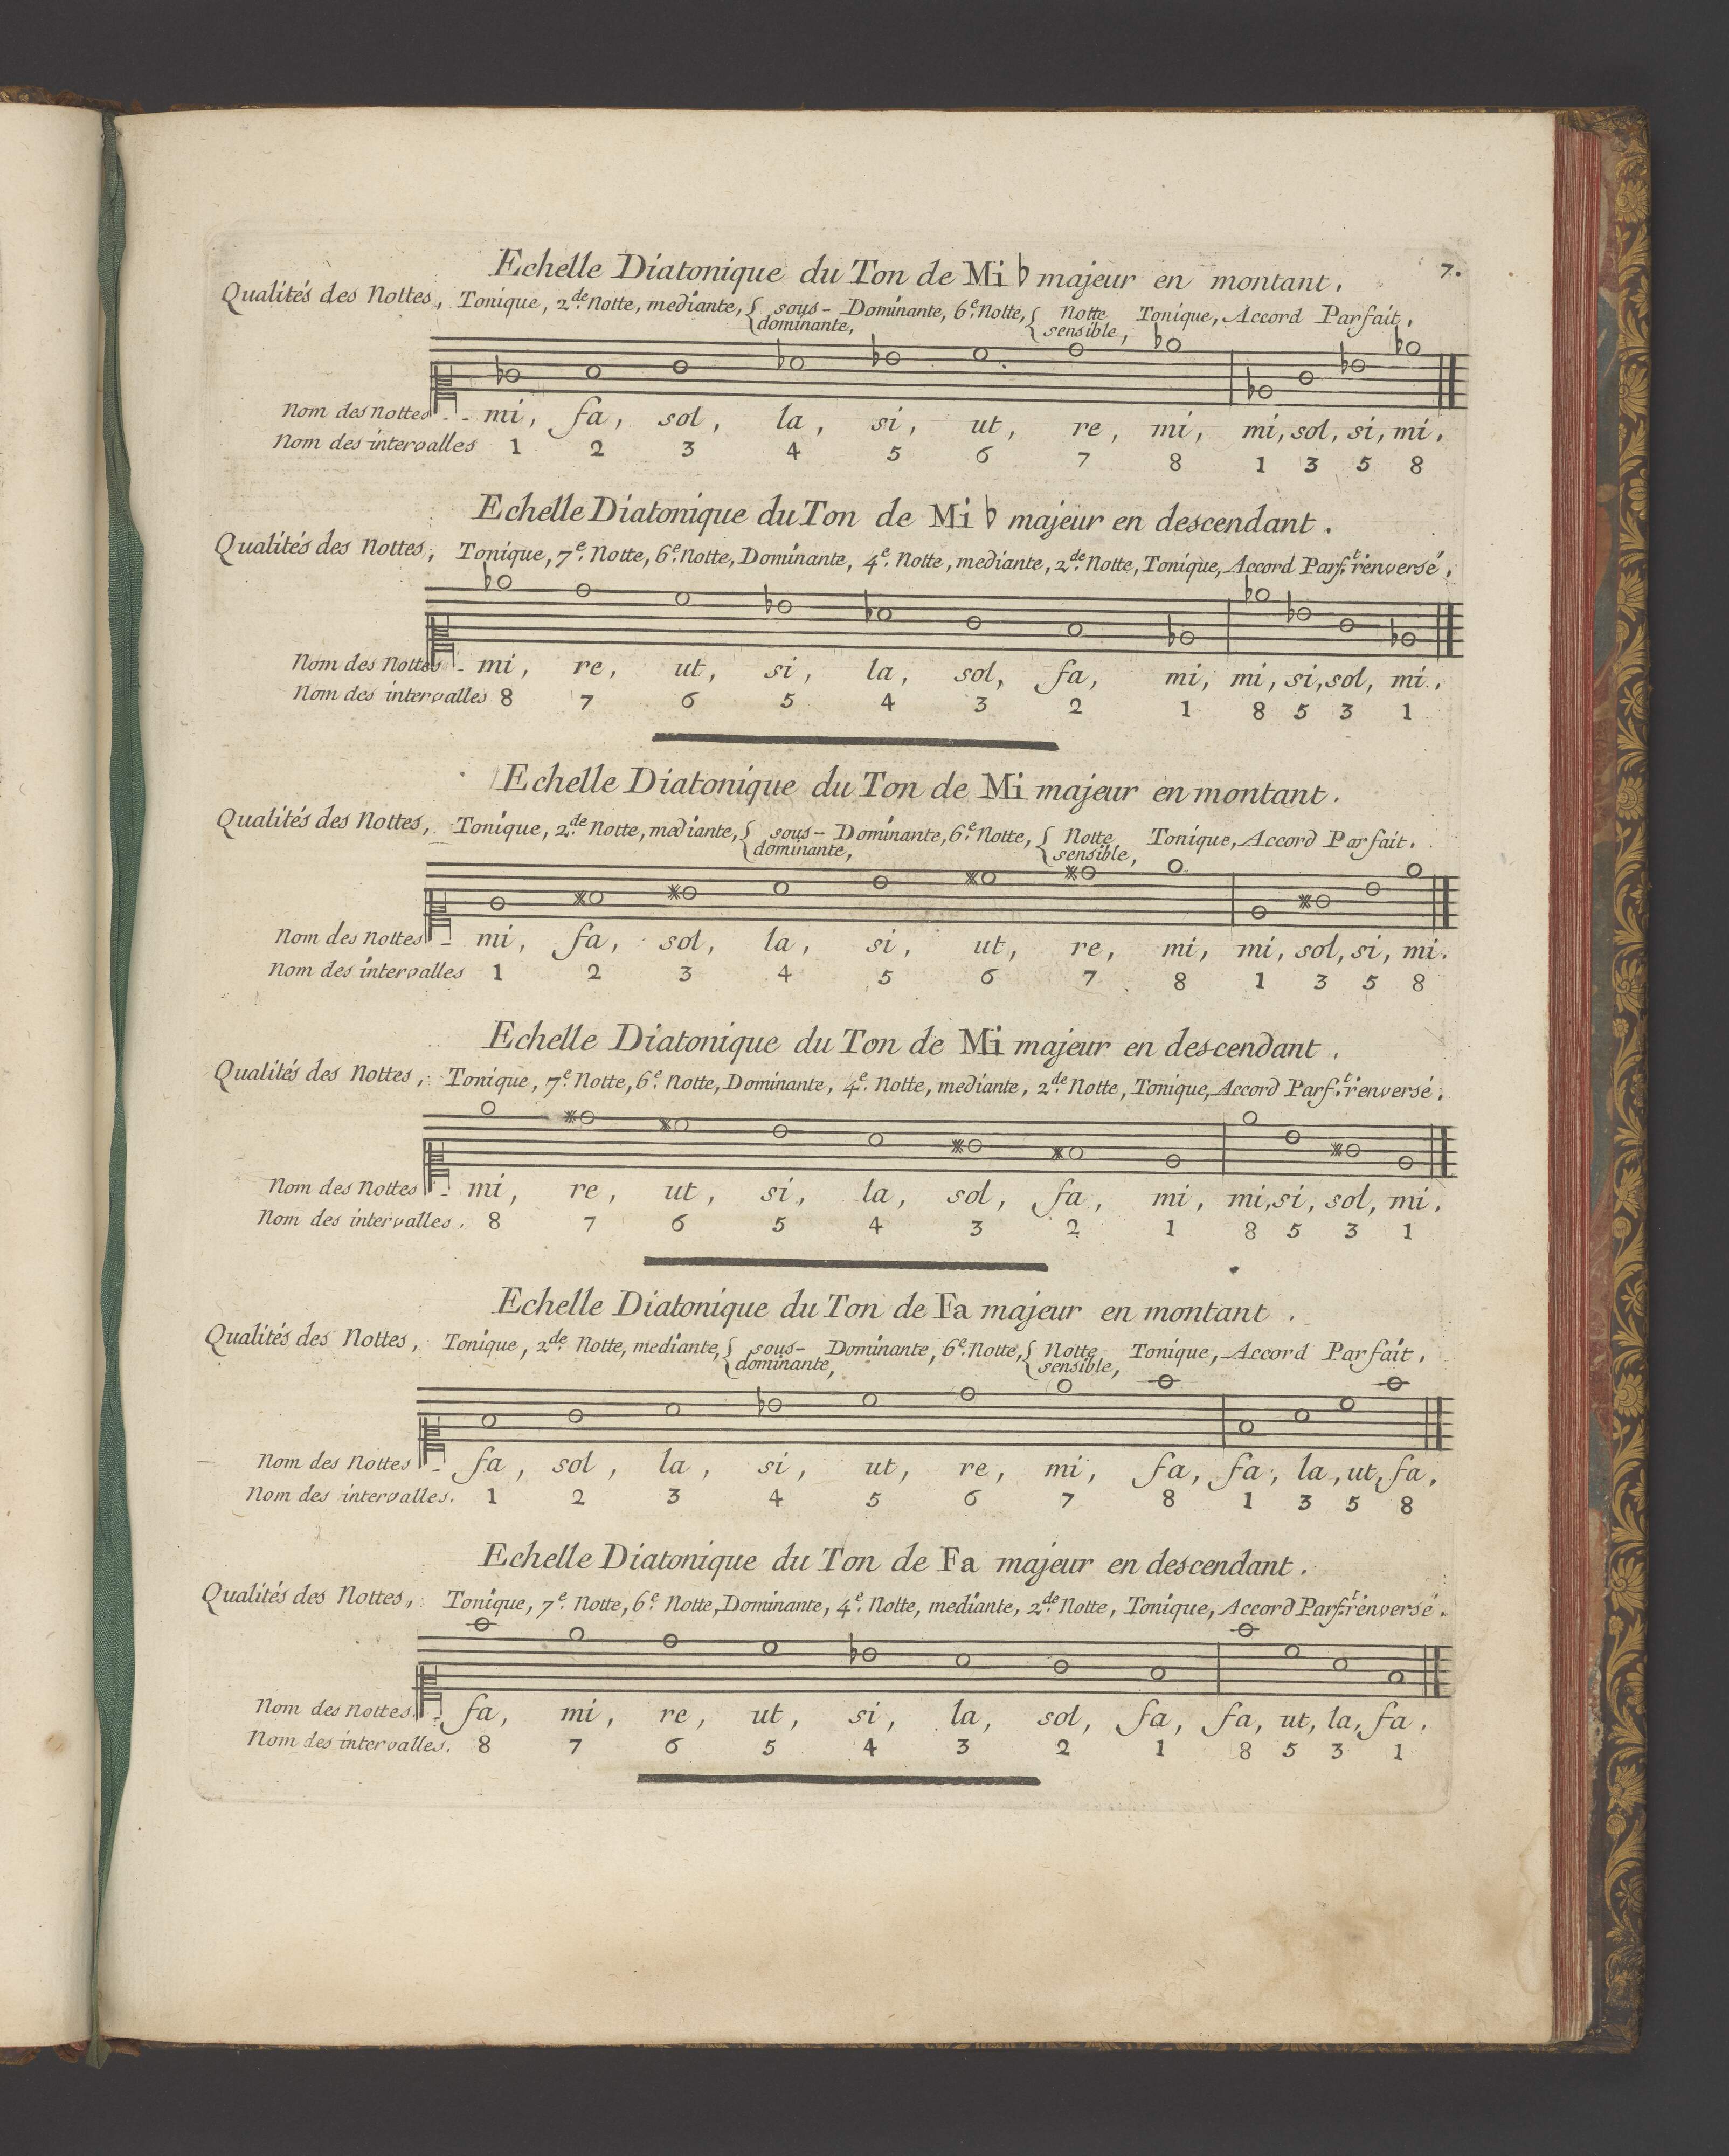 7.
Echelle Diatonique du Ton de Mi ♭ majeur en montant.
Qualités des Nottes, Tonique, 2.de Notte, mediante, { sous-dominante, Dominante, 6.e Notte, { Notte sensible, Tonique, Accord Parfait.
Nom des Nottes - - mi, fa, sol, la, si, ut, re, mi, mi, sol, si, mi.
Nom des intervalles 1 2 3 4 5 6 7 8 1 3 5 8
Echelle Diatonique du Ton de Mi ♭ majeur en descendant.
Qualités des Nottes, Tonique, 7.e Notte, 6.e Notte, Dominante, 4.e Notte, mediante, 2.de Notte, Tonique, Accord Parf.t renversé.
Nom des Nottes - mi, re, ut, si, la, sol, fa, mi, mi, si, sol, mi.
Nom des intervalles 8 7 6 5 4 3 2 1 8 5 3 1
Echelle Diatonique du Ton de Mi majeur en montant.
Qualités des Nottes, Tonique, 2.de Notte, mediante, { sous-dominante, Dominante, 6.e Notte, { Notte sensible, Tonique, Accord Parfait.
Nom des Nottes - mi, fa, sol, la, si, ut, re, mi, mi, sol, si, mi.
Nom des intervalles 1 2 3 4 5 6 7 8 1 3 5 8
Echelle Diatonique du Ton de Mi majeur en descendant.
Qualités des Nottes, Tonique, 7.e Notte, 6.e Notte, Dominante, 4.e Notte, mediante, 2.de Notte, Tonique, Accord Parf.t renversé.
Nom des Nottes - mi, re, ut, si, la, sol, fa, mi, mi, si, sol, mi.
Nom des intervalles. 8 7 6 5 4 3 2 1 8 5 3 1
Echelle Diatonique du Ton de Fa majeur en montant.
Qualités des Nottes, Tonique, 2.de Notte, mediante, { sous-dominante, Dominante, 6.e Notte, { Notte sensible, Tonique, Accord Parfait.
Nom des Nottes - fa, sol, la, si, ut, re, mi, fa, fa, la, ut, fa.
Nom des intervalles. 1 2 3 4 5 6 7 8 1 3 5 8
Echelle Diatonique du Ton de Fa majeur en descendant.
Qualités des Nottes, Tonique, 7.e Notte, 6.e Notte, Dominante, 4.e Notte, mediante, 2.de Notte, Tonique, Accord Parf.t renversé.
Nom des Nottes. - fa, mi, re, ut, si, la, sol, fa, fa, ut, la, fa.
Nom des intervalles. 8 7 6 5 4 3 2 1 8 5 3 1